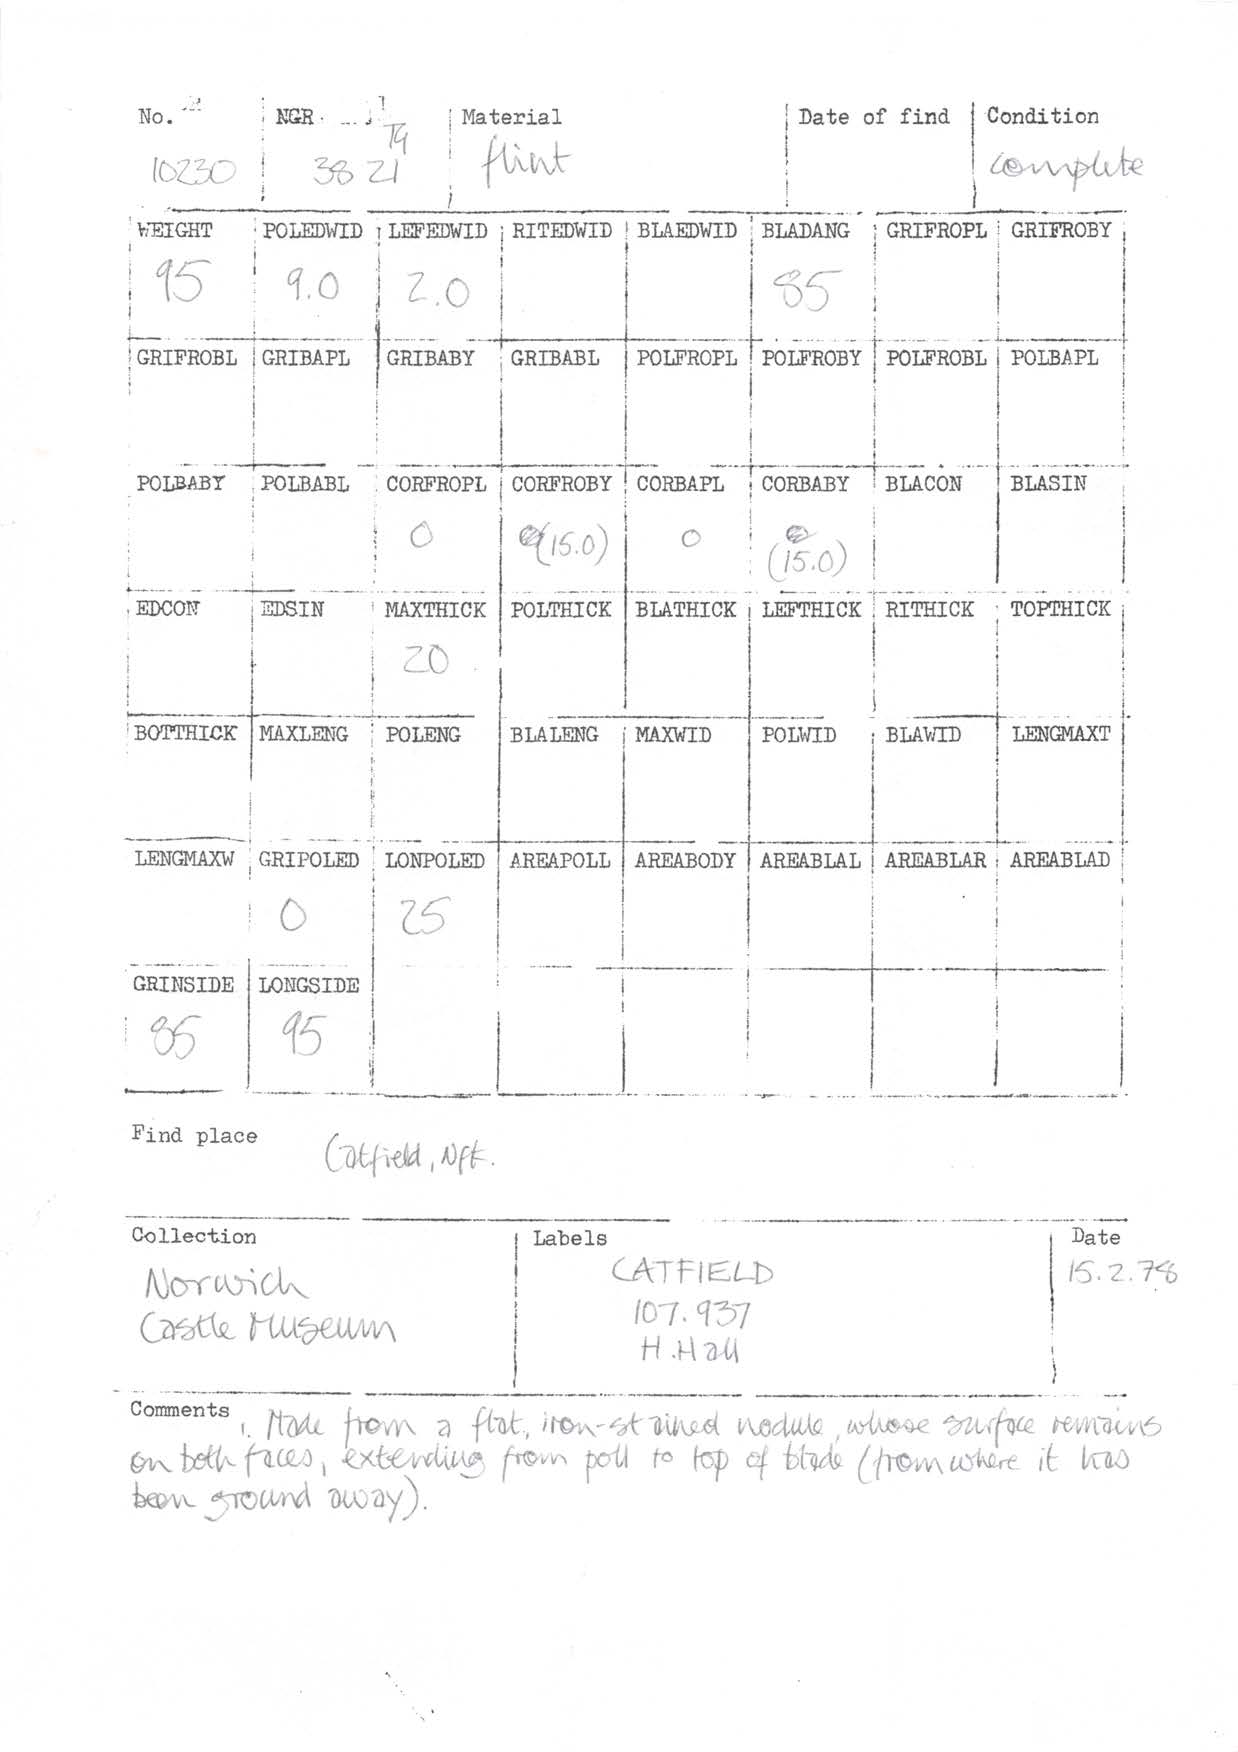 No. NGR Material Date of find Condition
TG
10230 38 21 flint complete
WEIGHT POLEDWID LEFEDWID RITEDWID BLAEDWID BLADANG GRIFROPL GRIFROBY
95 9.0 2.0 85
GRIFROBL GRIBAPL GRIBABY GRIBABL POLFROPL POLFROBY POLFROBL POLBAPL
POLBABY POLBABL CORFROPL CORFROBY CORBAPL CORBABY BLACON BLASIN
0 (15.0) 0 (15.0)
EDCON EDSIN MAXTHICK POLTHICK BLATHICK LEFTHICK RITHICK TOPTHICK
20
BOTTHICK MAXLENG POLENG BLALENG MAXWID POLWID BLAWID LENGMAXT
LENGMAXW GRIPOLED LONPOLED AREAPOLL AREABODY AREABLAL AREABLAR AREABLAD
0 25
GRINSIDE LONGSIDE
85 95
Find place Catfield, Nfk.
Collection Labels Date
Norwich CATFIELD 15.2.78
Castle Museum 107.937
H.Hall
Comments 1. Made from a flat, iron-stained nodule, whose surface remains
on both faces, extending from poll to top of blade (from where it has
been ground away).